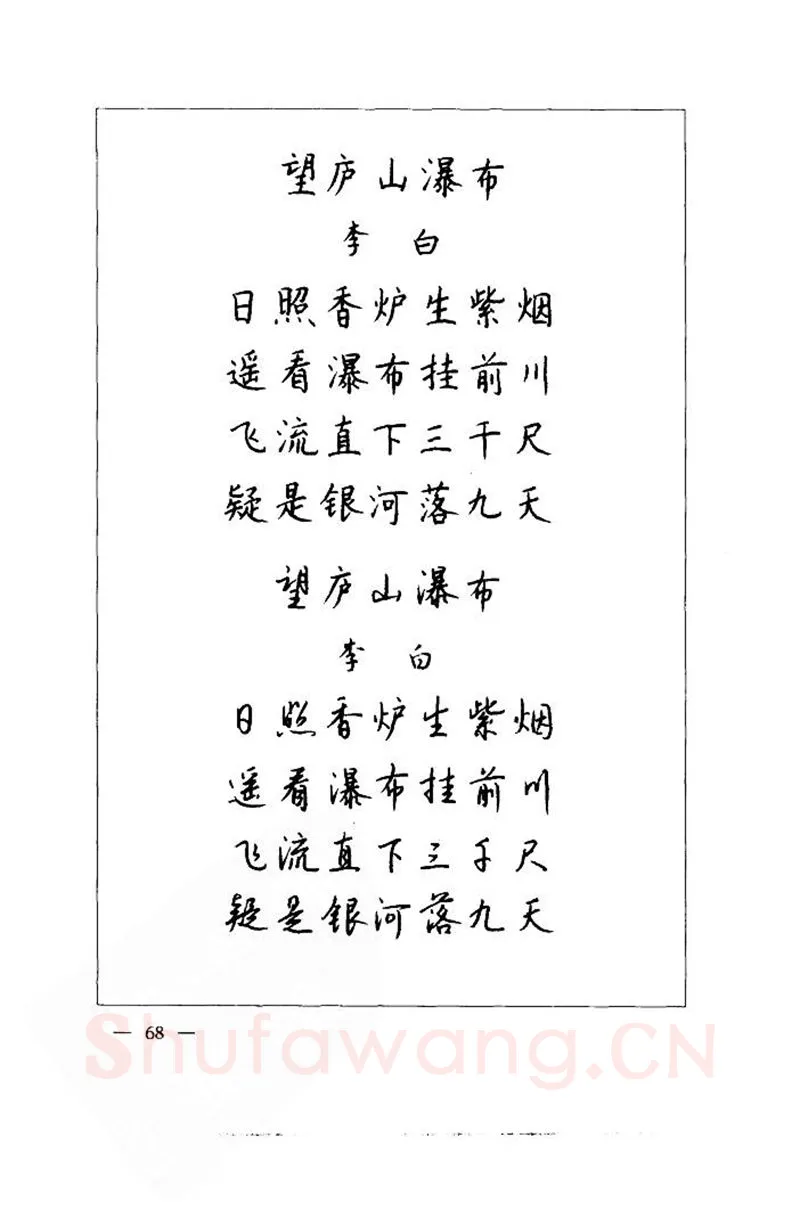 望庐山瀑布
李 白
日照香炉生紫烟
遥看瀑布挂前川
飞流直下三千尺
疑是银河落九天
望庐山瀑布
李 白
日照香炉生紫烟
遥看瀑布挂前川
飞流直下三千尺
疑是银河落九天
— 68 —
Shufawang.CN